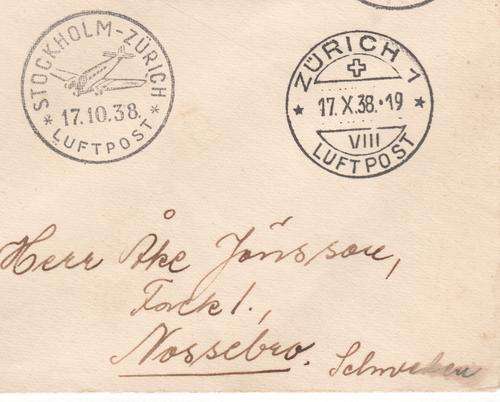 STOCKHOLM-ZÜRICH
* 17.10.38. *
LUFTPOST
ZÜRICH 1
* 17.X.38.-19 *
VIII
LUFTPOST
Herr Åke Jönsson,
Fack 1.,
Nossebro. Schweden